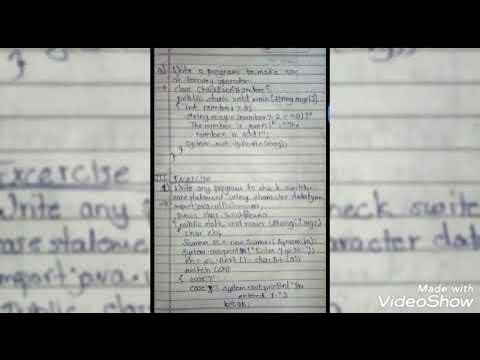 Write a program to make use
of ternary operator.
→ class CheckEvenNumber {
public static void main (String args[])
{ int number = 3;
String msg = (number % 2 == 0)?"
The number is even!" : "The
number is odd!";
System.out.println(msg);
}
}
Exercise
Write any program to check switch-
case statement using character datatype
→ import java.util.Scanner;
public class
{ public static void main (String[] args)
{ char ch;
Scanner sc = new Scanner (System.in);
System.out.println("Enter
ch = sc.next().charAt(0);
switch (ch)
{ case 'y':
case 'Y': System.out.println("You
entered Y.");
break;
Excercise
Write any
case stateme
import java.u
public class
check switch
character data
Made with
VideoShow